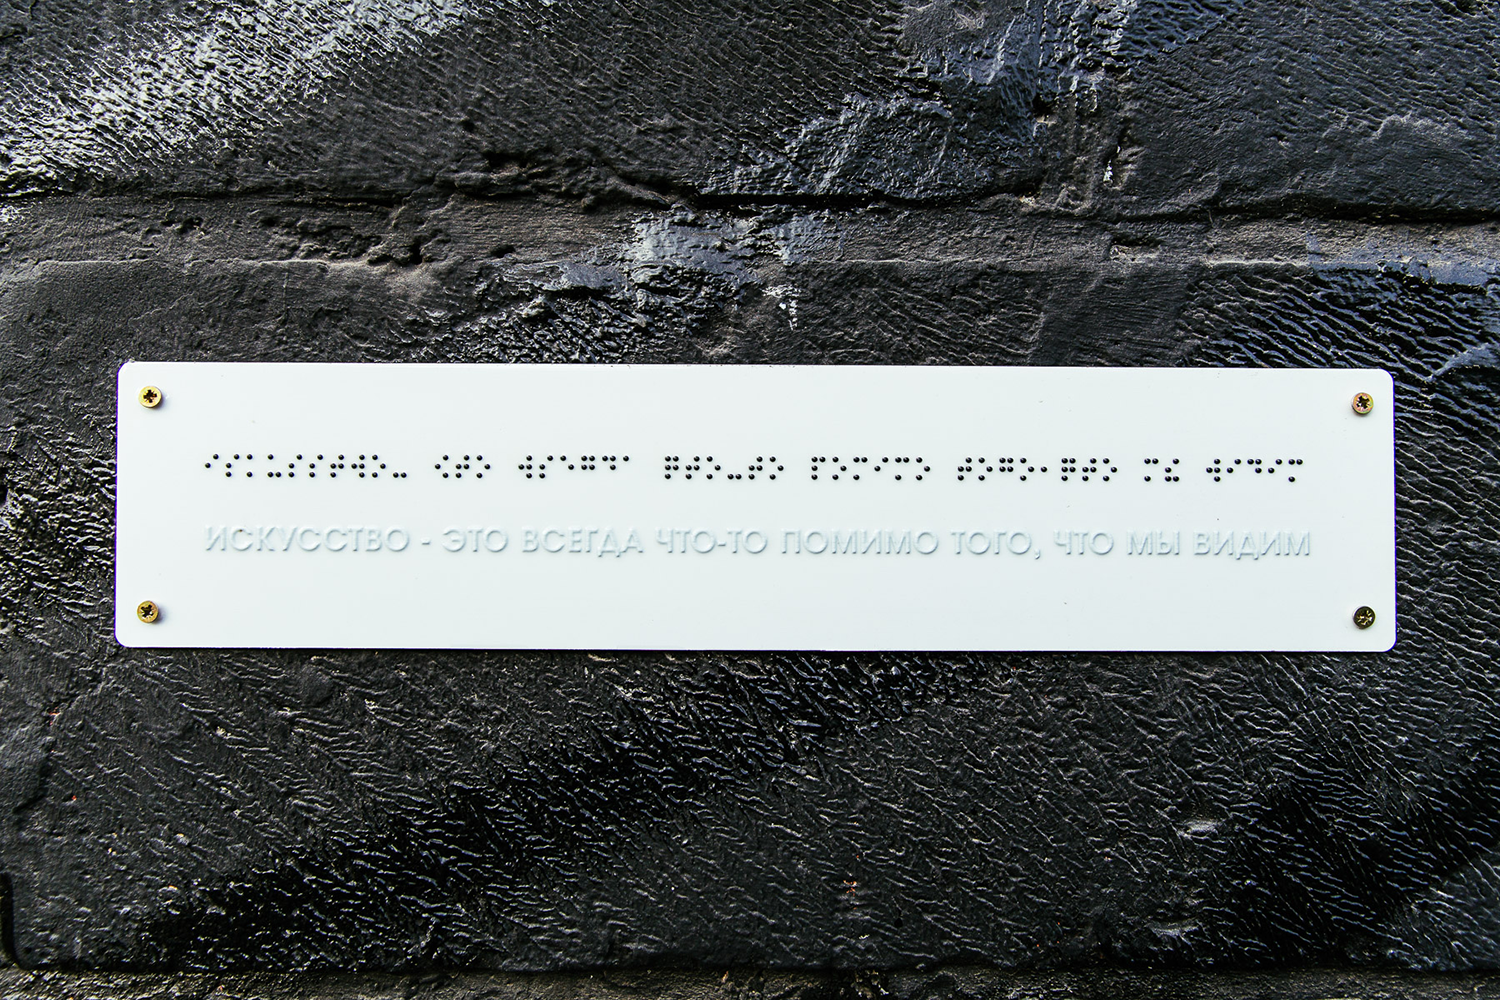 ⠊⠎⠅⠥⠎⠎⠞⠺⠕⠤ ⠪⠞⠕ ⠺⠎⠑⠛⠙⠁ ⠟⠞⠕⠤⠞⠕ ⠏⠕⠍⠊⠍⠕ ⠞⠕⠛⠕⠂⠟⠞⠕ ⠍⠮ ⠺⠊⠙⠊⠍
ИСКУССТВО - ЭТО ВСЕГДА ЧТО-ТО ПОМИМО ТОГО, ЧТО МЫ ВИДИМ